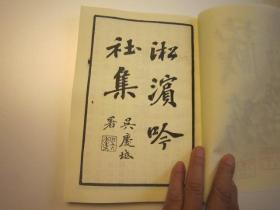 淞濱吟
社集
吳慶坻
署